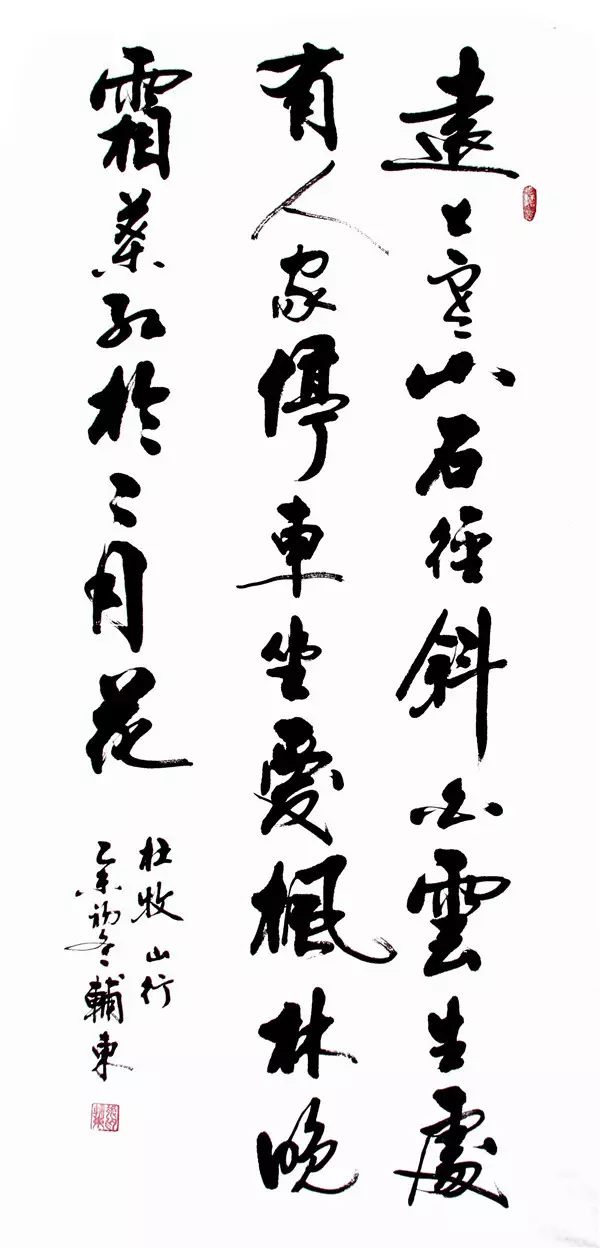 遠上寒山石徑斜白雲生處
有人家停車坐愛楓林晚
霜葉紅於二月花
杜牧山行
乙未初冬輔東